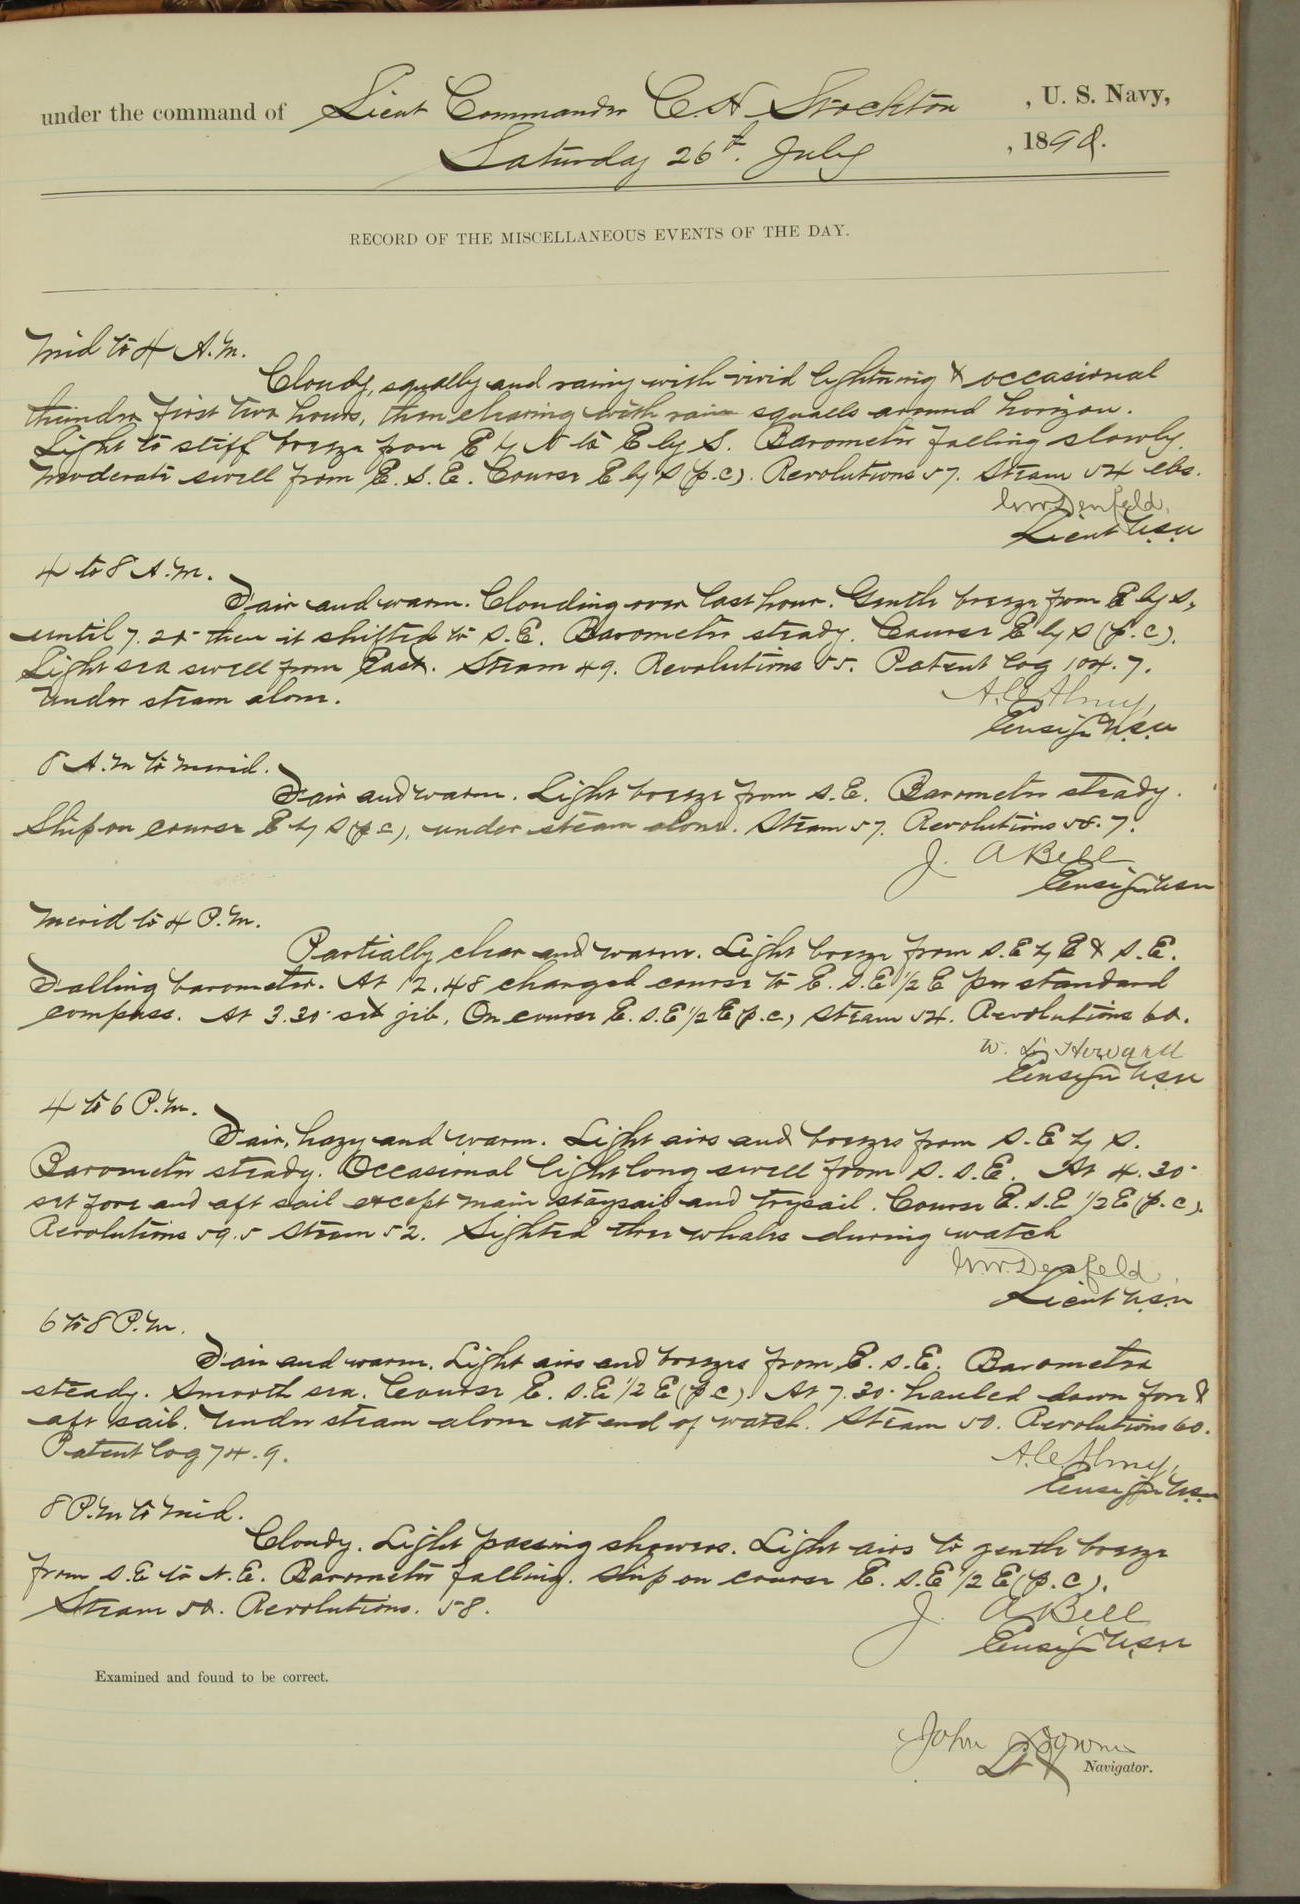 under the command of Lieut Commander C. H. Stockton, U. S. Navy,
Saturday 26th. July, 1890.
RECORD OF THE MISCELLANEOUS EVENTS OF THE DAY.
Mid to 4 A.M.
Cloudy, squally and rainy with vivid lightning & occasional
thunder first two hours, then clearing with rain squalls around horizon.
Light to stiff breeze from E by N to E by S. Barometer falling slowly.
Moderate swell from E.S.E. Course E by S (p.c). Revolutions 57. Steam 54 lbs.
Denfeld,
Lieut U.S.N
4 to 8 A.M.
Fair and warm. Clouding over last hour. Gentle breeze from E by S,
until 7.25 then it shifted to S.E. Barometer steady. Course E by S (p.c).
Light sea swell from East. Steam 49. Revolutions 55. Patent log 104.7.
Under steam alone.
A.C. Almy,
Ensign U.S.N
8 A.M to Merid.
Fair and warm. Light breeze from S.E. Barometer steady.
Ship on course E by S (p c), under steam alone. Steam 57. Revolutions 58.7.
J. A Bell
Ensign USN
Merid to 4 P.M.
Partially clear and warm. Light breeze from S.E by E & S.E.
Falling barometer. At 12.48 changed course to E.S.E 1/2 E per standard
compass. At 3.30 set jib. On course E.S.E 1/2 E (p.c) Steam 54. Revolutions 60.
W. L. Howard
Ensign USN
4 to 6 P.M.
Fair, hazy and warm. Light airs and breezes from S.E by S.
Barometer steady. Occasional light long swell from S.S.E. At 4.30
set fore and aft sail except main staysail and trysail. Course E.S.E 1/2 E (p.c).
Revolutions 59.5 Steam 52. Sighted three whales during watch
Denfeld,
Lieut U.S.N
6 to 8 P.M.
Fair and warm. Light airs and breezes from E.S.E. Barometer
steady. Smooth sea. Course E.S.E 1/2 E (p c). At 7.30 hauled down fore &
aft sail. Under steam alone at end of watch. Steam 50. Revolutions 60.
Patent log 74.9.
A.C. Almy,
Ensign U.S.N
8 P.M to Mid.
Cloudy. Light passing showers. Light airs to gentle breeze
from S.E to N.E. Barometer falling. Ship on course E.S.E 1/2 E (p.c).
Steam 50. Revolutions. 58.
J. A Bell
Ensign U.S.N
Examined and found to be correct.
John Downes
Lt Navigator.